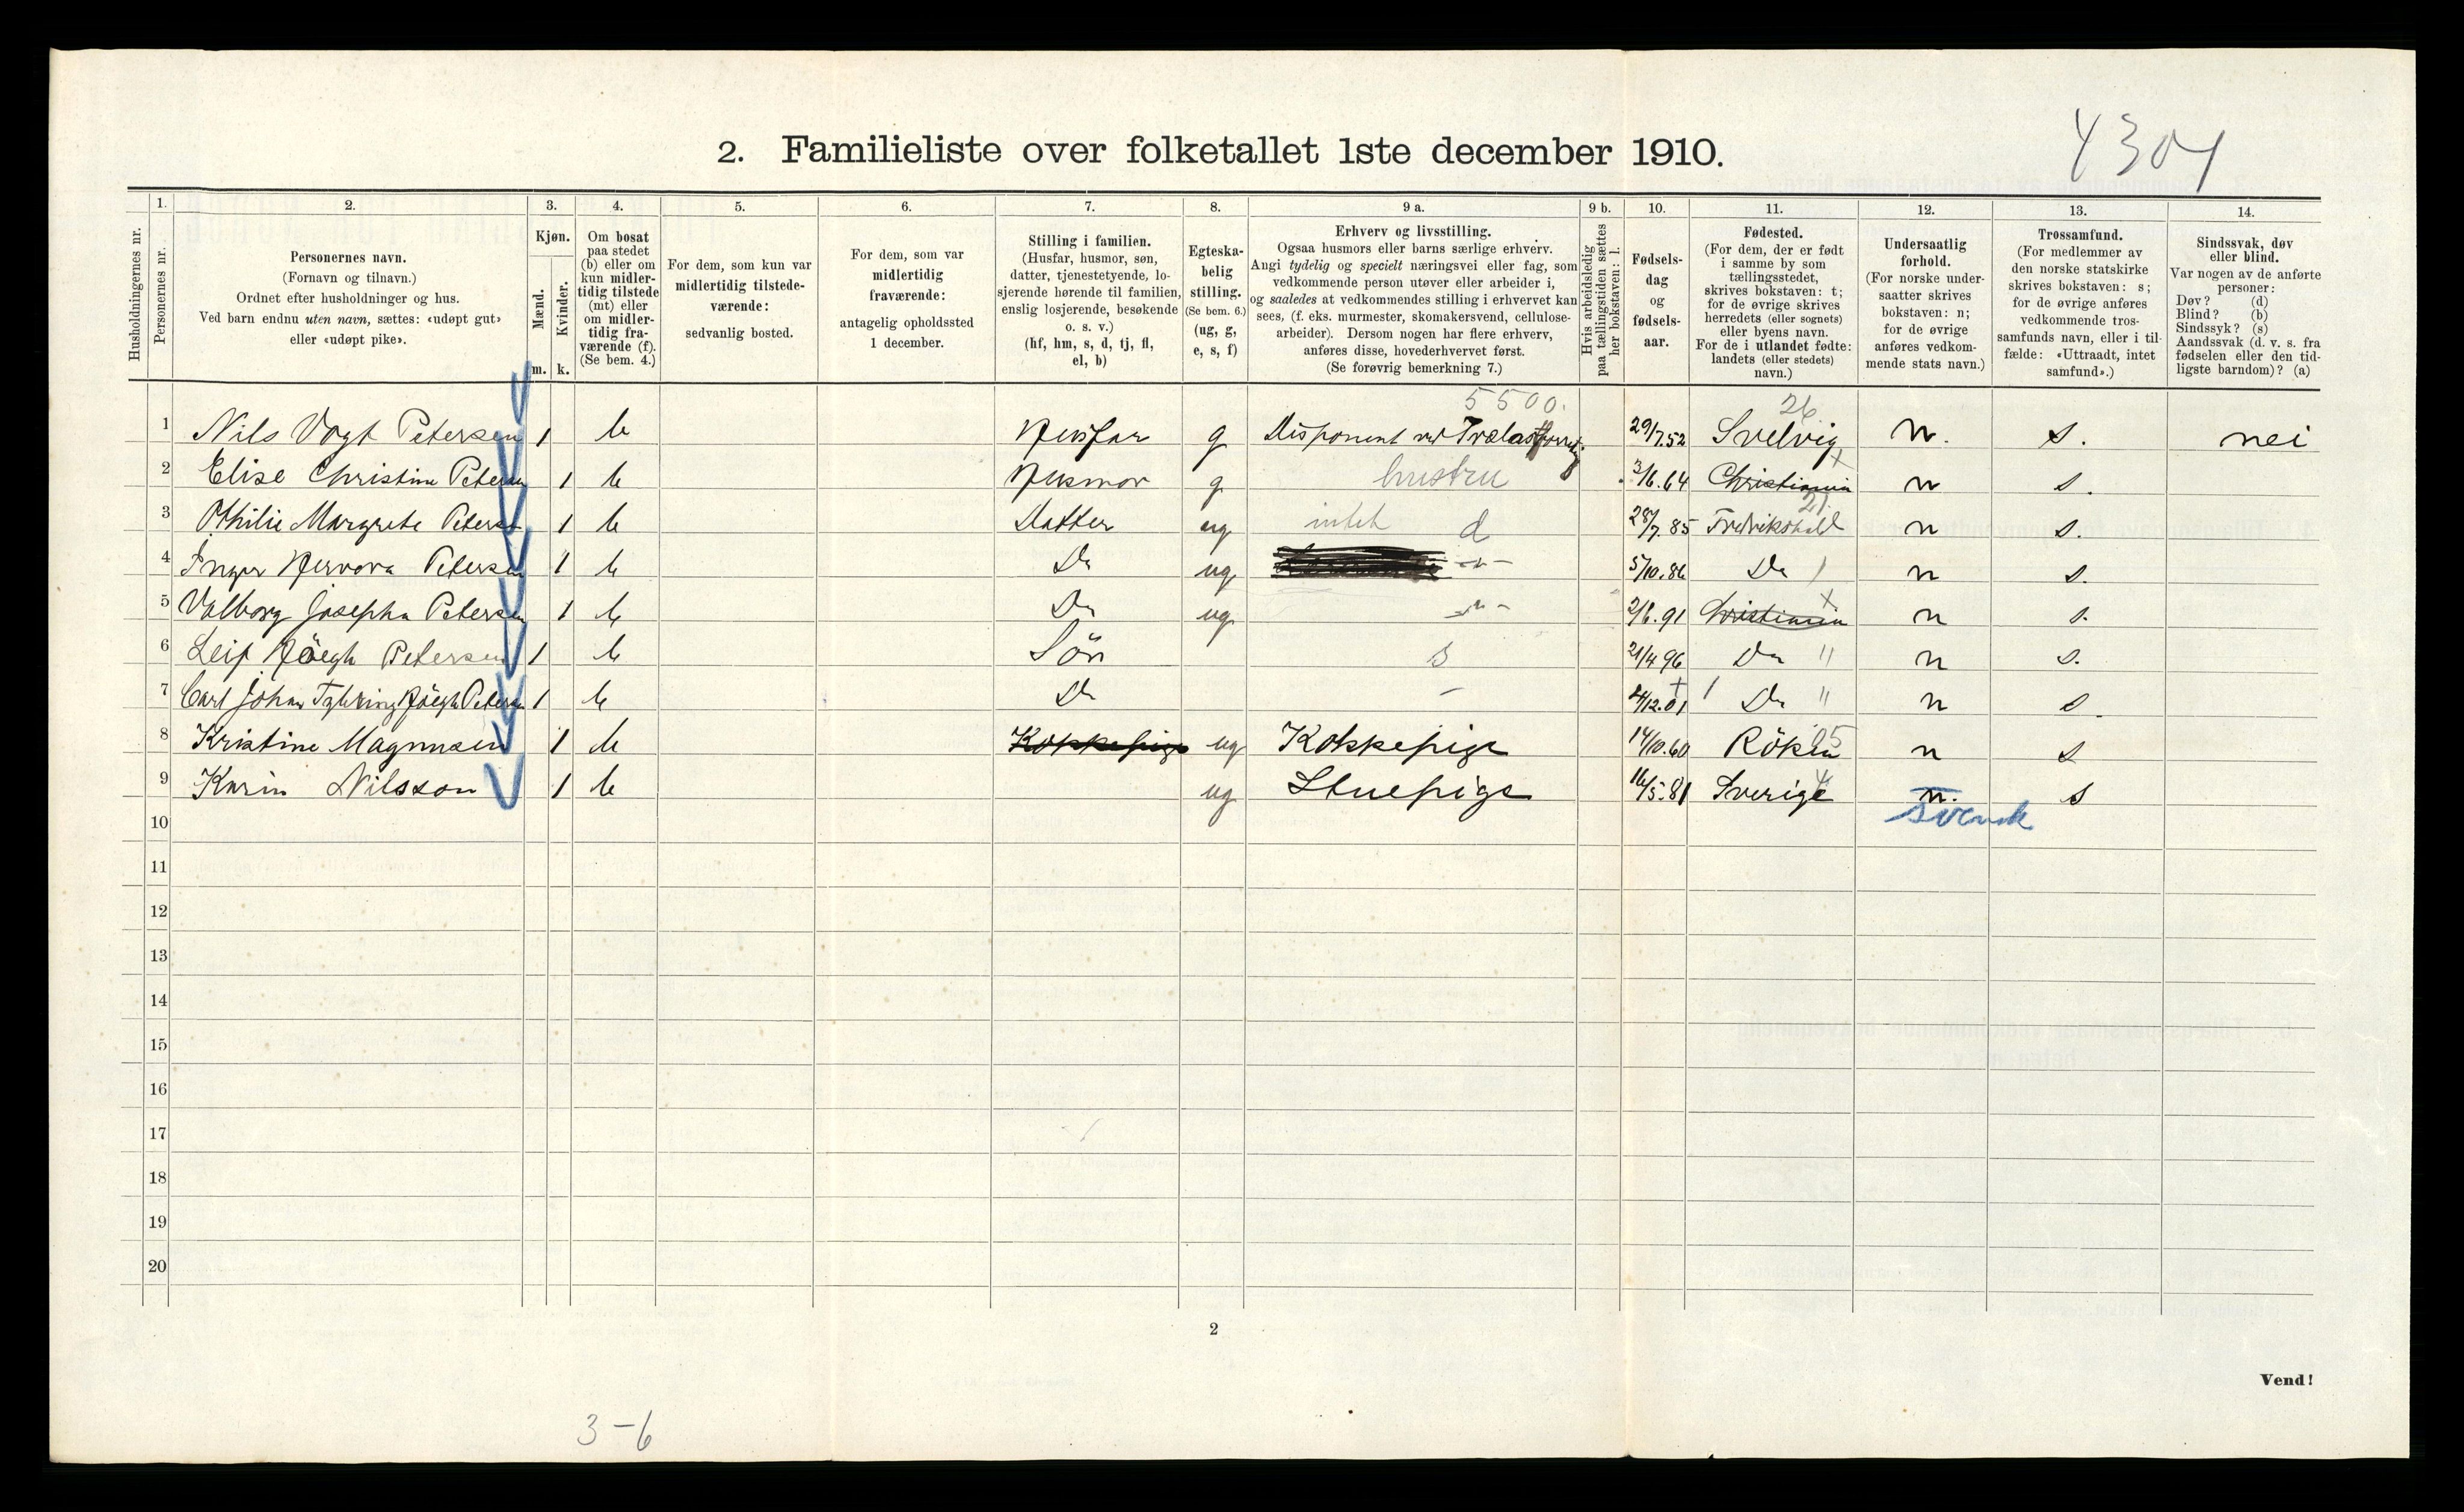 4304
2. Familieliste over folketallet 1ste december 1910.
Husholdningernes nr.
1.
Personernes nr.
2.
Personernes navn.
(Fornavn og tilnavn.)
Ordnet efter husholdninger og hus.
Ved barn endnu uten navn, sættes: «udøpt gut»
eller «udøpt pike».
3.
Kjøn.
Mænd.
Kvinder.
m. k.
4.
Om bosat
paa stedet
(b) eller om
kun midler-
tidig tilstede
(mt) eller
om midler-
tidig fra-
værende (f).
(Se bem. 4.)
5.
For dem, som kun var
midlertidig tilstede-
værende:
sedvanlig bosted.
6.
For dem, som var
midlertidig
fraværende:
antagelig opholdssted
1 december.
7.
Stilling i familien.
(Husfar, husmor, søn,
datter, tjenestetyende, lo-
sjerende hørende til familien,
enslig losjerende, besøkende
o. s. v.)
(hf, hm, s, d, tj, fl,
el, b)
8.
Egteska-
belig
stilling.
(Se bem. 6.)
(ug, g,
e, s, f)
9 a.
Erhverv og livsstilling.
Ogsaa husmors eller barns særlige erhverv.
Angi tydelig og specielt næringsvei eller fag, som
vedkommende person utøver eller arbeider i,
og saaledes at vedkommendes stilling i erhvervet kan
sees, (f. eks. murmester, skomakersvend, cellulose-
arbeider). Dersom nogen har flere erhverv,
anføres disse, hovederhvervet først.
(Se forøvrig bemerkning 7.)
9 b.
Hvis arbeidsledig
paa tællingstiden sættes
her bokstaven: l.
10.
Fødsels-
dag
og
fødsels-
aar.
11.
Fødested.
(For dem, der er født
i samme by som
tællingsstedet,
skrives bokstaven: t;
for de øvrige skrives
herredets (eller sognets)
eller byens navn.
For de i utlandet fødte:
landets (eller stedets)
navn.)
12.
Undersaatlig
forhold.
(For norske under-
saatter skrives
bokstaven: n;
for de øvrige
anføres vedkom-
mende stats navn.)
13.
Trossamfund.
(For medlemmer av
den norske statskirke
skrives bokstaven: s;
for de øvrige anføres
vedkommende tros-
samfunds navn, eller i til-
fælde: «Uttraadt, intet
samfund».)
14.
Sindssvak, døv
eller blind.
Var nogen av de anførte
personer:
Døv? (d)
Blind? (b)
Sindssyk? (s)
Aandssvak (d. v. s. fra
fødselen eller den tid-
ligste barndom)? (a)
5500. 26
1 Nils Vogt Petersen 1 b Husfar g Disponent ved Trælastforretn. 29/7.52 Svelvig n. s. nei
2 Elise Christine Petersen 1 b Husmor g hustru 3/6.64 Christiania x n s.
21
3 Othilie Margrete Petersen 1 b Datter ug intet d 28/7.85 Fredrikshald n s.
4 Inger Hervora Petersen 1 b Do ug -"- 5/10.86 Do n s.
5 Valborg Josepha Petersen 1 b Do ug -"- 2/6.91 Christiania x n s.
6 Leif Höegh Petersen 1 b Sön s 21/4 96 Do " n s.
7 Carl Johan Höegh Petersen 1 b Do - 4/12.01 Do " n s.
8 Kristine Magnusen 1 b Kokkepige ug Kokkepige 14/10.60 Röken n s
9 Karin Nilsson 1 b ug Stuepige 16/5.81 Sverige n. s
svensk
10
11
12
13
14
15
16
17
18
19
20
2
Vend!
3-6